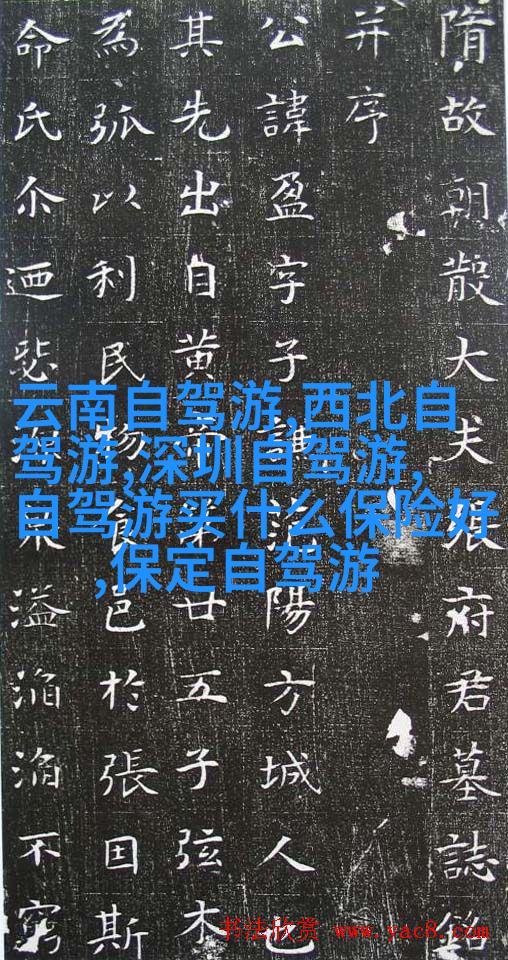 隋故朝散大夫張府君墓誌銘
并序
公諱盈字子謙范陽方城人也
其先出自黄帝第廿五子弦木
為弧以利民物食邑於張因斯
命氏尒迺泉溢滔滔不窮
云南自驾游,西北自
驾游,深圳自驾游,
自驾游买什么保险好
,保定自驾游
书法欣赏 www.yac8.com